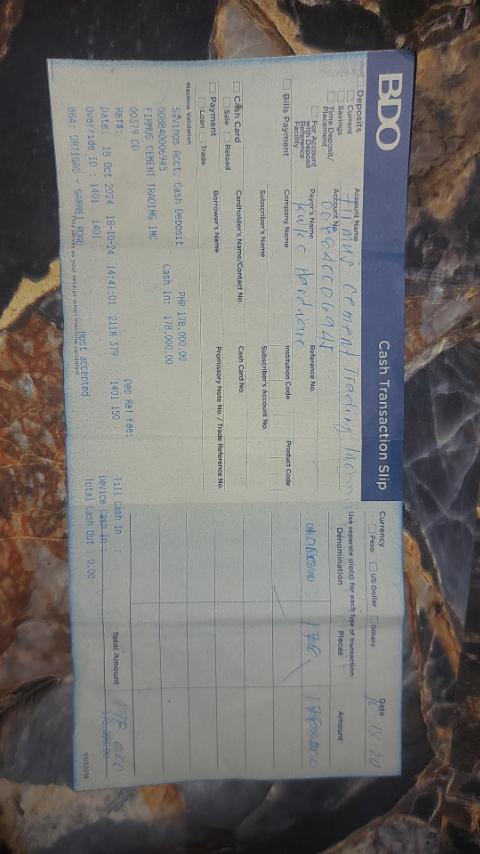 BDO
Cash Transaction Slip
Deposits
Current
Savings
Time Deposit/
Placement
For Account
with Deposit
Reference
Facility
Account Name
Cement Trading
Account No.
Payor's Name
KWLC Hardware
Reference No.
Bills Payment
Company Name
Institution Code
Product Code
Subscriber's Name
Subscriber's Account No.
Cash Card
Sale
Reload
Cardholder's Name/Contact No.
Cash Card No.
Payment
Loan
Trade
Borrower's Name
Promissory Note No. / Trade Reference No.
Currency
Peso
US Dollar
Others
Date
Use separate slip(s) for each type of transaction.
Denomination
Pieces
Amount
Total Amount
178,000
178,000.00
Machine Validation
Savings Acct. Cash Deposit
PHP 178,000.00
008840006945
Cash In: 178,000.00
FIRMUS CEMENT TRADING INC
00379 CO
Dep Ref Fee:
Ref#:
1401 150
Till Cash In :
Date: 18 Oct 2024 18-10-24 14:41:01 211N 379
Device Cash In :
Override ID : 1401 1401
Host accepted
Total Cash Out : 0.00
884: ORTIGAS - GARNET ROAD
This serves as your receipt when machine validated.